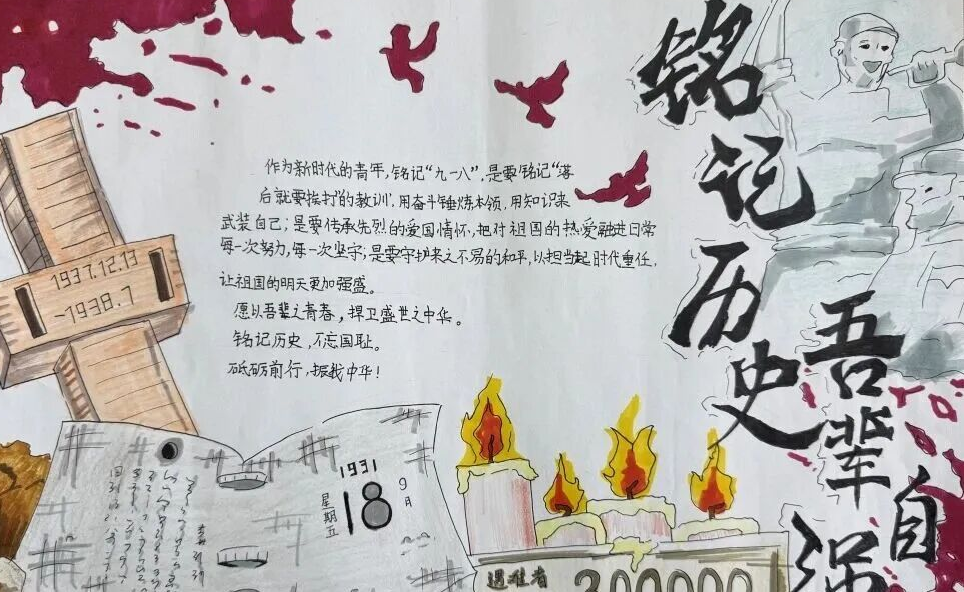 铭记历史
吾辈自强
作为新时代的青年，铭记“九一八”，是要铭记“落
后就要挨打”的教训，用奋斗锤炼本领，用知识来
武装自己；是要传承先烈的爱国情怀，把对祖国的热爱融进日常
每一次努力，每一次坚守；是要守护来之不易的和平，以担当起时代重任，
让祖国的明天更加强盛。
愿以吾辈之青春，捍卫盛世之中华。
铭记历史，不忘国耻。
砥砺前行，振我中华！
1937.12.13
-1938.1
1931
9月
18
星期五
遇难者
300000